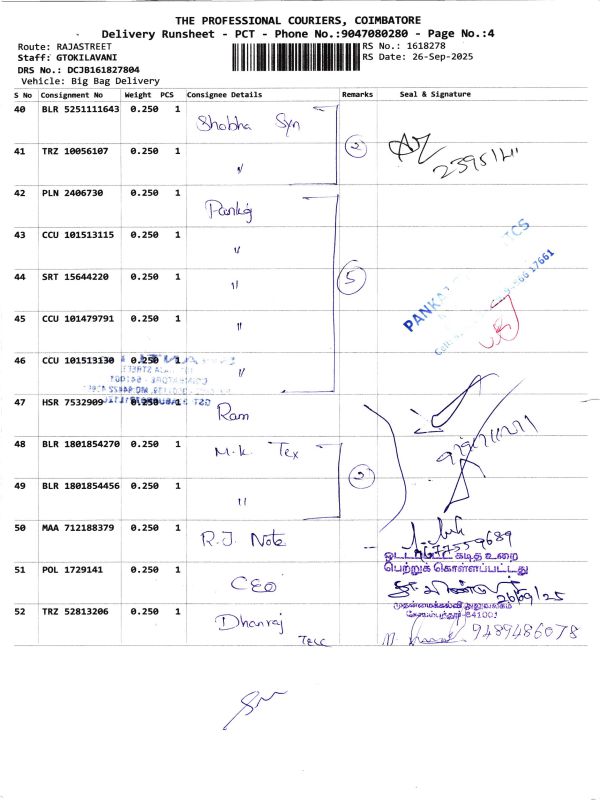 THE PROFESSIONAL COURIERS, COIMBATORE
Delivery Runsheet - PCT - Phone No.:9047080280 - Page No.:4
Route: RAJASTREET
RS No.: 1618278
Staff: GTOKILAVANI
RS Date: 26-Sep-2025
DRS No.: DCJB161827804
Vehicle: Big Bag Delivery
S No Consignment No Weight PCS Consignee Details Remarks Seal & Signature
40 BLR 5251111643 0.250 1 Shobha Syn
41 TRZ 10056107 0.250 1 " 2
42 PLN 2406730 0.250 1 Pankaj
43 CCU 101513115 0.250 1 "
44 SRT 15644220 0.250 1 " 5
45 CCU 101479791 0.250 1 "
46 CCU 101513130 0.250 1 "
47 HSR 7532909 0.250 1 Ram
48 BLR 1801854270 0.250 1 M.K. Tex
49 BLR 1801854456 0.250 1 " 2
50 MAA 712188379 0.250 1 R.J. Note
கடித உறை
பெற்றுக் கொள்ளப்பட்டது
51 POL 1729141 0.250 1 CEO
26/09/25
முதன்மைக்கல்வி அலுவலகம்
கோயம்புத்தூர்-641001
52 TRZ 52813206 0.250 1 Dhanraj
Tell
9489486078